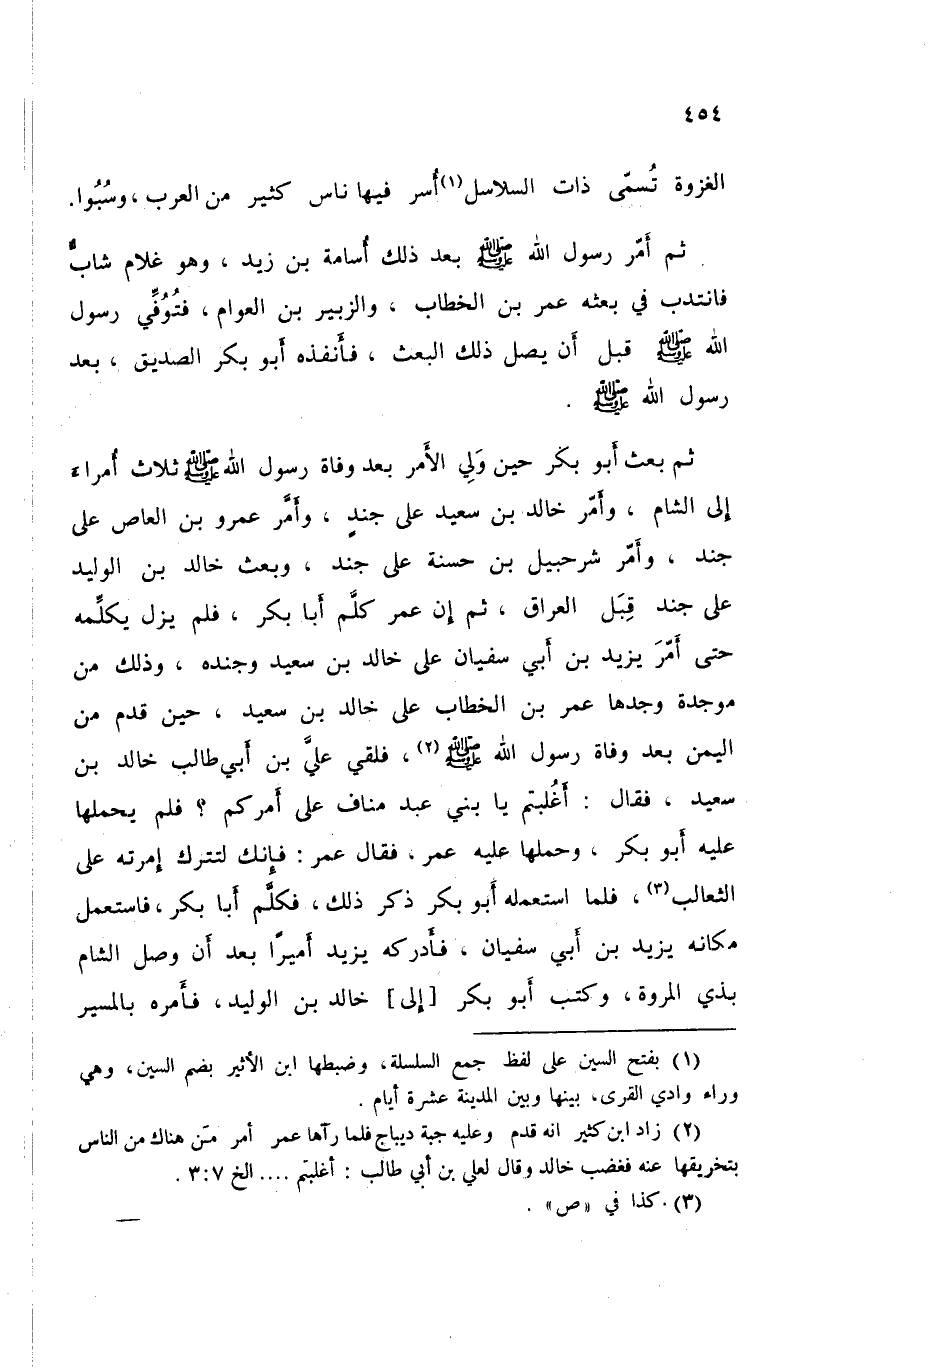 ٤٥٤
الغزوة تُسمّى ذات السلاسل(١) أُسر فيها ناس كثير من العرب ، وسُبُوا.
ثم أَمّر رسول الله ﷺ بعد ذلك أُسامة بن زيد ، وهو غلام شابٌّ
فانتدب في بعثه عمر بن الخطاب ، والزبير بن العوام ، فتُوُفِّي رسول
الله ﷺ قبل أَن يصل ذلك البعث ، فأَنفذه أَبو بكر الصديق ، بعد
رسول الله ﷺ .
ثم بعث أَبو بكر حين وَلِي الأَمر بعد وفاة رسول الله ﷺ ثلاث أُمراء
إلى الشام ، وأَمّر خالد بن سعيد على جندٍ ، وأَمَّر عمرو بن العاص على
جند ، وأَمّر شرحبيل بن حسنة على جند ، وبعث خالد بن الوليد
على جند قِبَل العراق ، ثم إن عمر كلَّم أَبا بكر ، فلم يزل يكلِّمه
حتى أَمّرَ يزيد بن أَبي سفيان على خالد بن سعيد وجنده ، وذلك من
موجدة وجدها عمر بن الخطاب على خالد بن سعيد ، حين قدم من
اليمن بعد وفاة رسول الله ﷺ (٢) ، فلقي عليَّ بن أَبي طالب خالد بن
سعيد ، فقال : أَغُلبتم يا بني عبد مناف على أَمركم ؟ فلم يحملها
عليه أَبو بكر ، وحملها عليه عمر ، فقال عمر : فإنك لتترك إمرته على
الثعالب(٣) ، فلما استعمله أَبو بكر ذكر ذلك ، فكلَّم أَبا بكر ، فاستعمل
مكانه يزيد بن أَبي سفيان ، فأَدركه يزيد أَميرًا بعد أَن وصل الشام
بذي المروة ، وكتب أَبو بكر [إلى] خالد بن الوليد ، فأَمره بالمسير
(١) بفتح السين على لفظ جمع السلسلة، وضبطها ابن الأثير بضم السين، وهي
وراء وادي القرى، بينها وبين المدينة عشرة أيام .
(٢) زاد ابن كثير انه قدم وعليه جبة ديباج فلما رآها عمر أمر مَن هناك من الناس
بتخريقها عنه فغضب خالد وقال لعلي بن أبي طالب : أغلبتم .... الخ ٧:٣ .
(٣) كذا في «ص» .